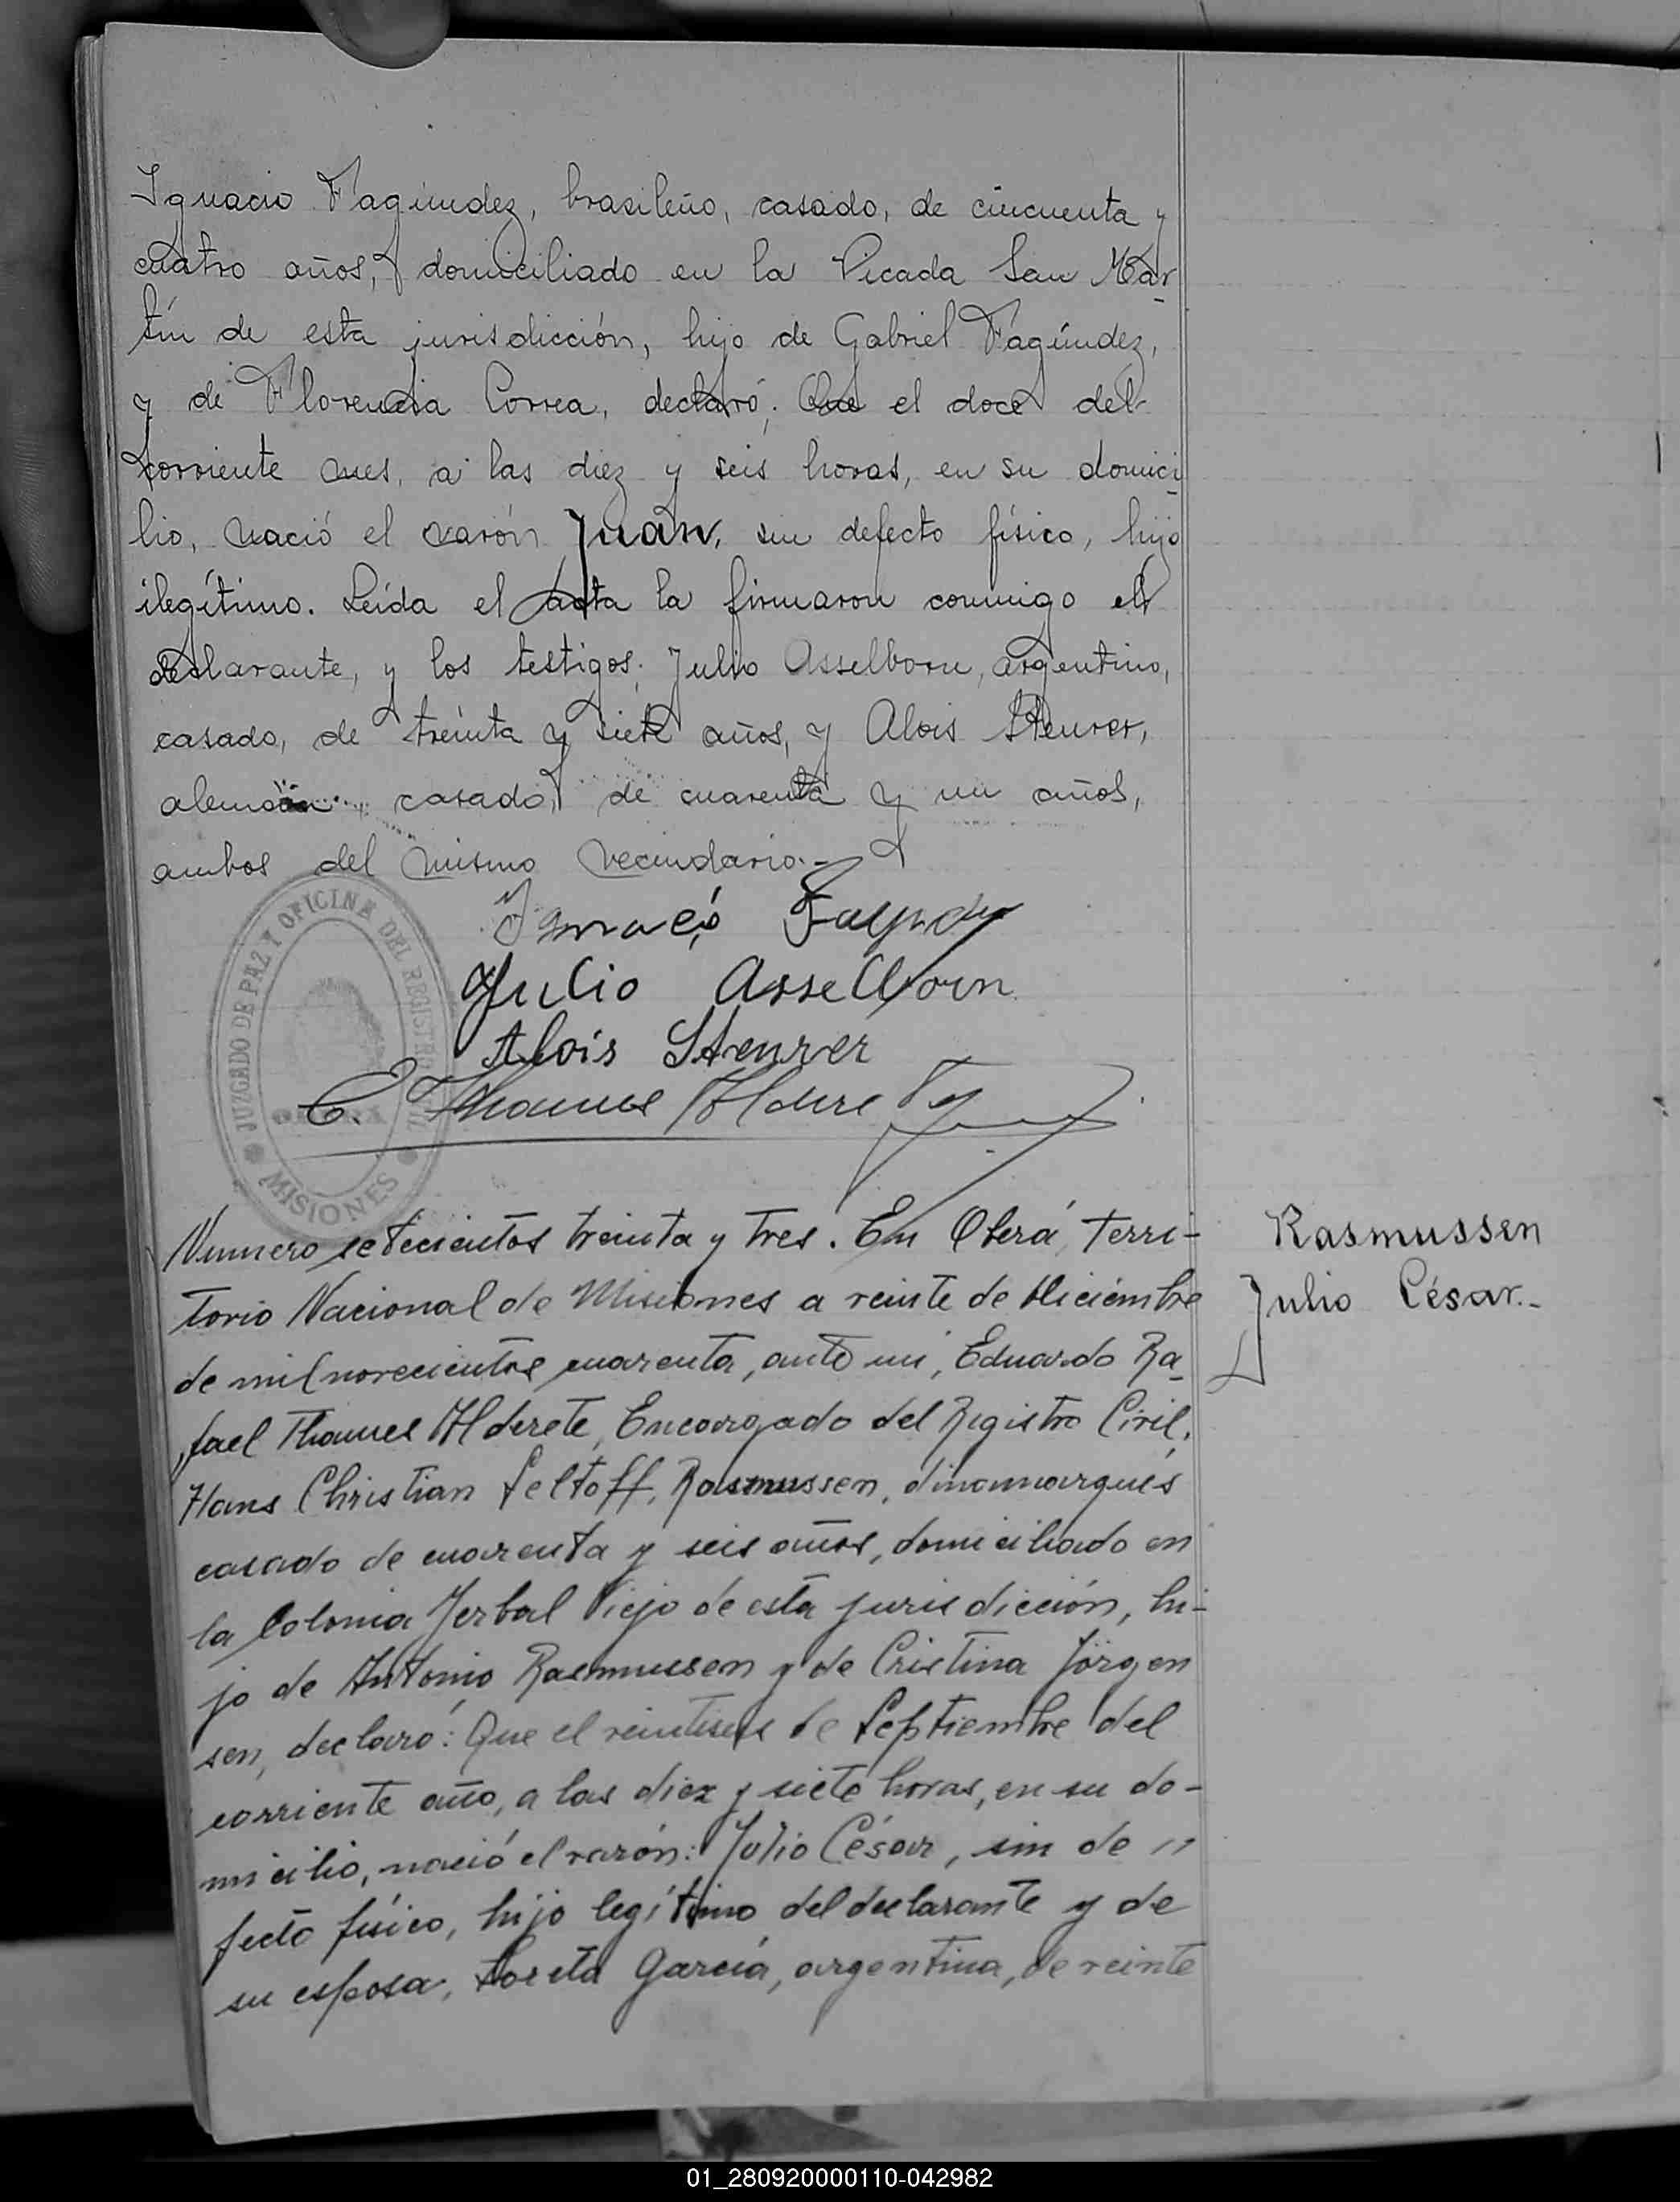 Ignacio Fagúndez, brasileño, casado, de cincuenta y
cuatro años, domiciliado en la Picada San Mar-
tín de esta jurisdicción, hijo de Gabriel Fagúndez,
y de Florencia Correa, declaró: Que el doce del
corriente mes, a las diez y seis horas, en su domici-
lio, nació el varón Juan, sin defecto físico, hijo
ilegítimo. Leída el acta la firmaron conmigo el
declarante, y los testigos: Julio Asselborn, argentino,
casado, de treinta y siete años, y Alois Steurer,
alemán casado, de cuarenta y un años,
ambos del mismo vecindario.-
JUZGADO DE PAZ Y OFICINA DEL REGISTRO CIVIL
MISIONES
Julio Asselborn
Alois Steurer
E. Thames Alderete
Numero setecientos treinta y tres. En Oberá, Terri-
torio Nacional de Misiones a veinte de Diciembre
de mil novecientos cuarenta, ante mi, Eduardo Ra-
fael Thames Alderete, Encargado del Registro Civil,
Hans Christian Seltoff, Rasmussen, dinamarqués
casado de cuarenta y seis años, domiciliado en
la Colonia Yerbal Viejo de esta jurisdicción, hi-
jo de Antonio Rasmussen y de Cristina Jörgen
sen, declaró: Que el veintiseis de Septiembre del
corriente año, a las diez y siete horas, en su do-
micilio, nació el varón: Julio César, sin de "
fecto físico, hijo legítimo del declarante y de
su esposa, Loreta García, argentina, de veinte
Rasmussen
Julio César.-
01_280920000110-042982